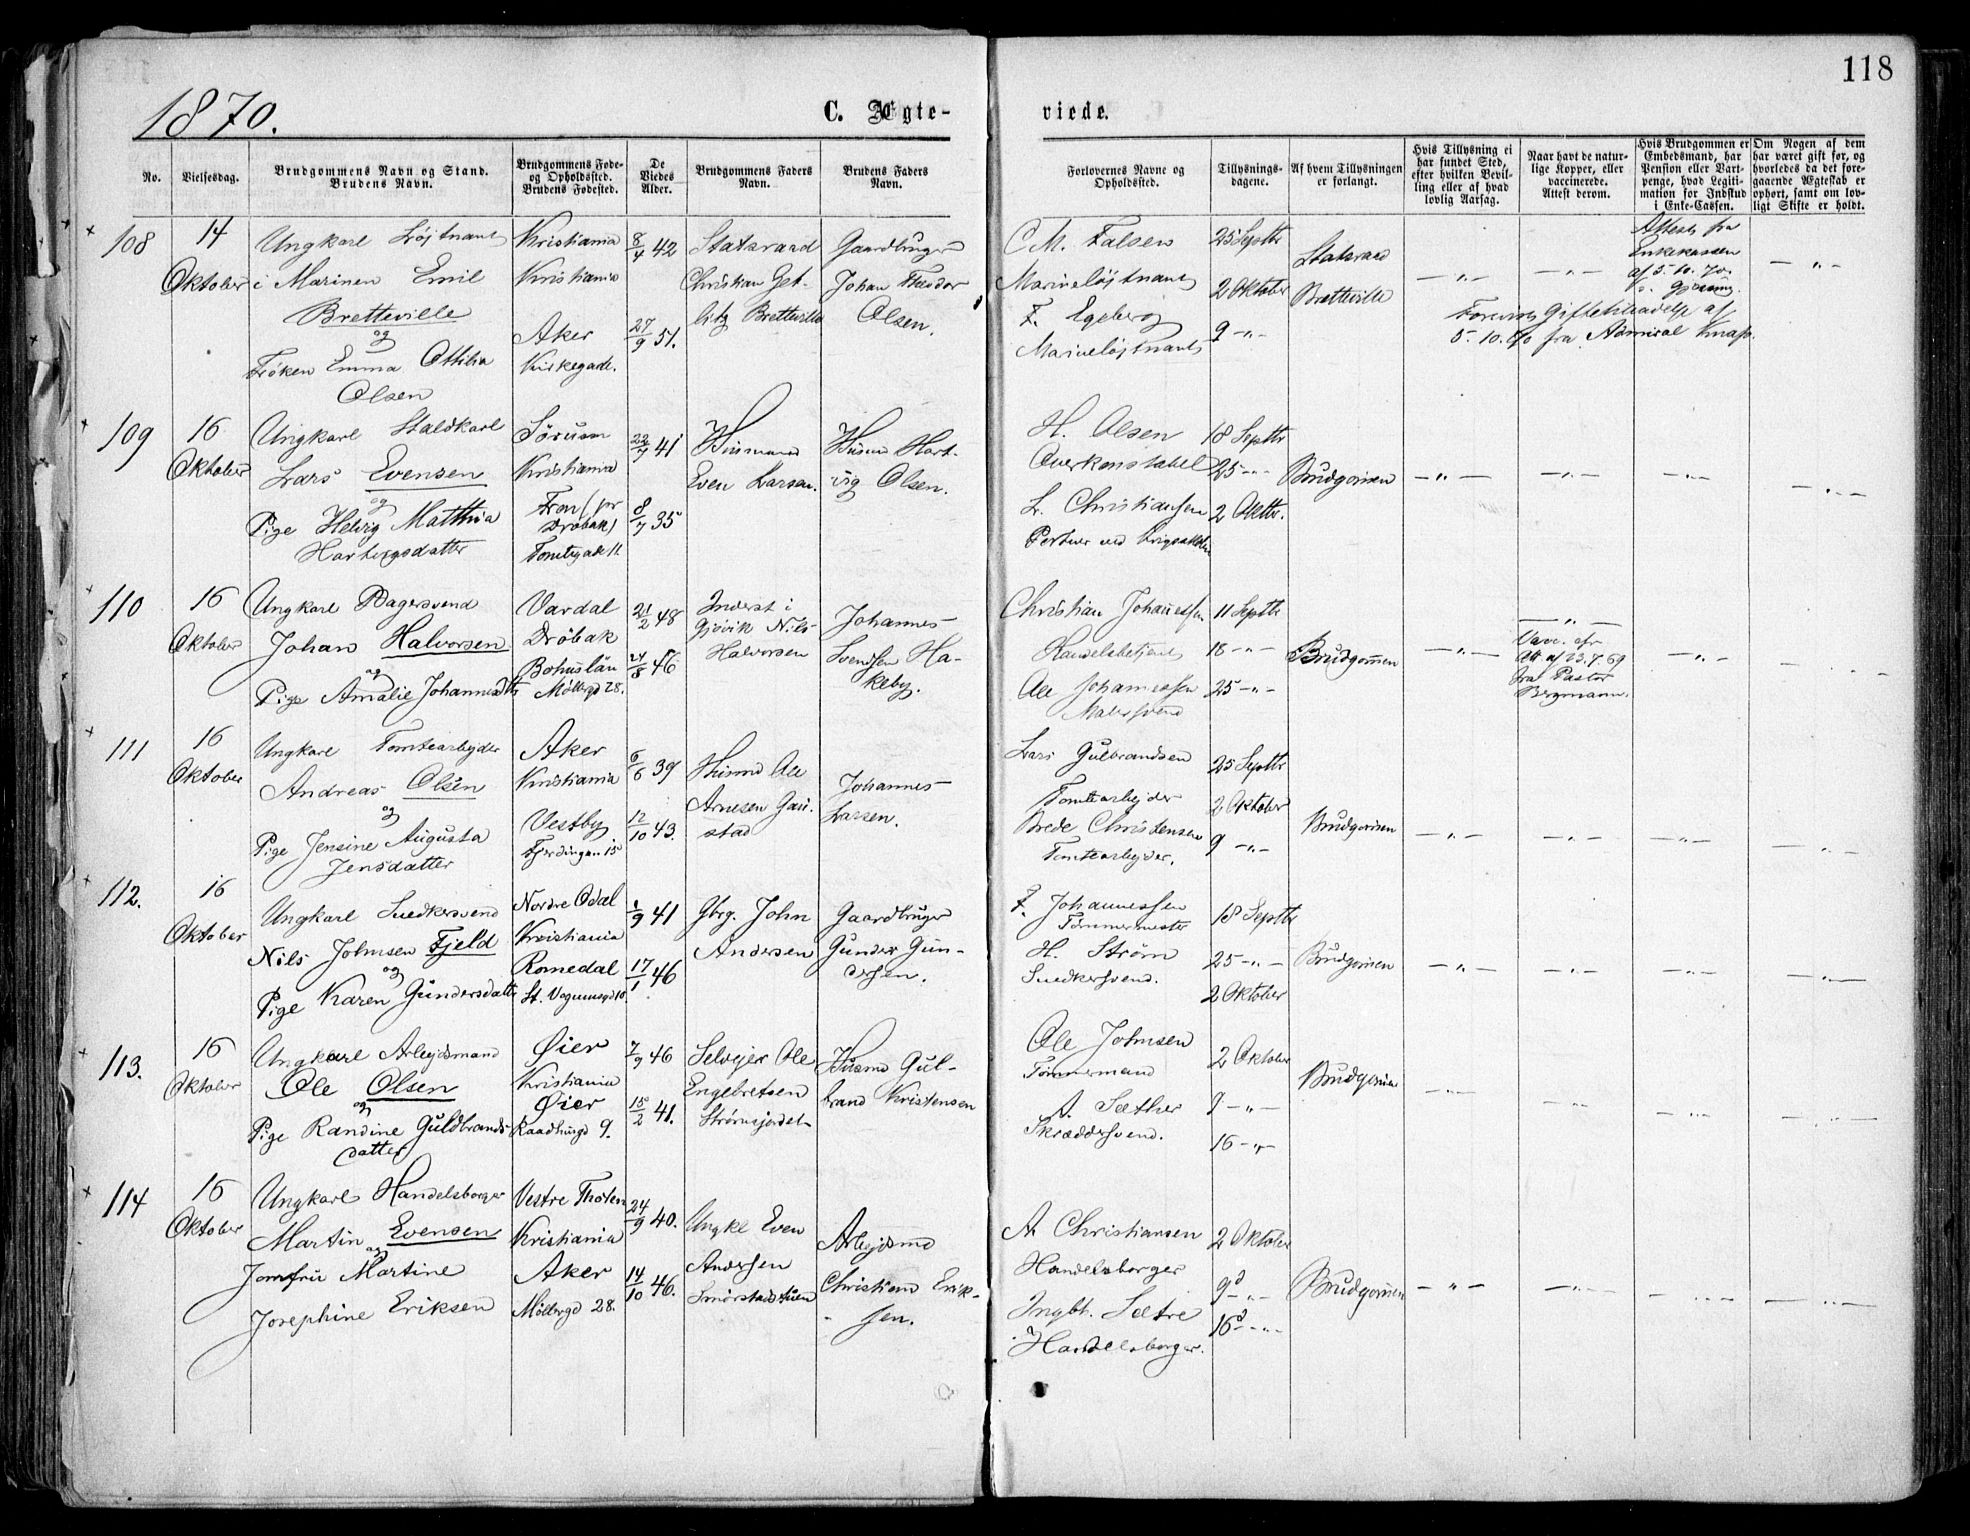 118
1870.
C. Ægte-
viede.
No.
Vielsesdag.
Brudgommens Navn og Stand.
Brudens Navn.
Brudgommens Føde-
og Opholdssted.
Brudens Fødested.
De
Viedes
Alder.
Brudgommens Faders
Navn.
Brudens Faders
Navn.
Forlovernes Navne og
Opholdssted.
Tillysnings-
dagene.
Af hvem Tillysningen
er forlangt.
Hvis Tillysning ei
har fundet Sted,
efter hvilken Bevil-
ling eller af hvad
lovlig Aarsag.
Naar havt de natur-
lige Kopper, eller
vaccinerede.
Attest derom.
Hvis Brudgommen er
Embedsmand, har
Pension eller Vart-
penge, hvad Legiti-
mation for Indskud
i Enke-Cassen.
Om Nogen af dem
har været gift før, og
hvorledes da det fore-
gaaende Ægteskab er
ophørt, samt om lov-
ligt Skifte er holdt.
108
14
Oktober
Ungkarl Løjtnant
i Marinen Emil
Bretteville
og
Frøken Emma Othilia
Olsen
Kristiania
Kristiania
Aker
Kirkegade.
8/4 42
27/9 51.
Statsraad
Christian Get-
litz Bretteville
Gaardbruger
Johan Theodor
Olsen.
C. M. Falsen
Marineløjtnant
F. Egeberg
Marineløjtnant
25 Septbr
2 Oktober
9 -"-
Statsraad
Bretteville
-"-
-"-
Attest fra
Enkekassen
af 5. 10. 70.
-"-
Giftetilladelse af
5. 10. 70 fra Admiral
109
16
Oktober
Ungkarl Staldkarl
Lars Evensen
og
Pige Helvig Matthia
Hartvigsdatter
Sørum
Kristiania
Fron (pr
Drøbak)
Tomtegade 11.
22/7 41
8/7 35
Husmand
Even Larsen.
Husmd Hart-
vig Olsen.
H. Olsen
Overkonstabel
L. Christiansen
Portner ved
18 Septbr
25 -"-
2 Oktbr.
Brudgommen
-"-
-"-
-"-
-"-
110
16
Oktober
Ungkarl Bagersvend
Johan Halvorsen
og
Pige Amalie Johannesdtr
Vardal
Drøbak
Bohuslän
Møllergd 28.
21/2 48
24/8 46
Inderst i
Gjøvik Nils
Halvorsen
Johannes
Svendsen Ha-
keby.
Christian Johannessen
Handelsbetjent
Ole Johannessen
Malersvend
11 Septbr
18 -"-
25 -"-
Brudgommen
-"-
-"-
Vacc. efr
Att af 23.7.69
fra Pastor
Bergmann.
-"-
111
16
Oktober
Ungkarl Tomtearbejder
Andreas Olsen
og
Pige Jensine Augusta
Jensdatter
Aker
Kristiania
Vestby
Fjerdingen 15
6/6 39
12/10 43.
Husmd Ole
Arnesen Gau-
stad
Johannes
Larsen.
Lars Gulbrandsen
Tomtearbejder
Brede Christensen
Tomtearbejder.
25 Septbr
2 Oktober
9 -"-
Brudgommen
-"-
-"-
-"-
-"-
112.
16
Oktober
Ungkarl Snedkersvend
Nils Johnsen Fjeld
og
Pige Karen Gundersdatter
Nordre Odal
Kristiania
Romedal
St. Vognmgd 10.
1/9 41
17/1 46
Gbrg. John
Andersen
Gaardbruger
Gunder Gun-
dersen.
F. Johannessen
Tømmermester
H. Strøm
Snedkersvend.
18 Septbr
25 -"-
2 Oktober
Brudgommen
-"-
-"-
-"-
-"-
113.
16
Oktober
Ungkarl Arbejdsmand
Ole Olsen
og
Pige Randine Guldbrands-
datter
Øier
Kristiania
Øier
Raadhusgd 9.
7/9 46
15/2 41.
Selvejer Ole
Engebretsen
Strømsjordet
Husmd Gul-
brand Kristensen
Ole Johnsen
Tømmermand
A. Sæther
Skræddersvend.
2 Oktober
9 -"-
16 -"-
Brudgommen
-"-
-"-
-"-
-"-
114
16
Oktober
Ungkarl Handelsborger
Martin Evensen
og
Jomfru Martine
Josephine Eriksen
Vestre Thoten
Kristiania
Aker
Møllergd 28.
24/9 40.
14/10 46.
Ungkl Even
Andersen
Smørstadstuen
Arbejdsmd
Christian Erik-
sen.
A. Christiansen
Handelsborger
Ingbt. Sætre
Handelsborger.
2 Oktober
9d -"-
16d -"-
Brudgommen
-"-
-"-
-"-
-"-